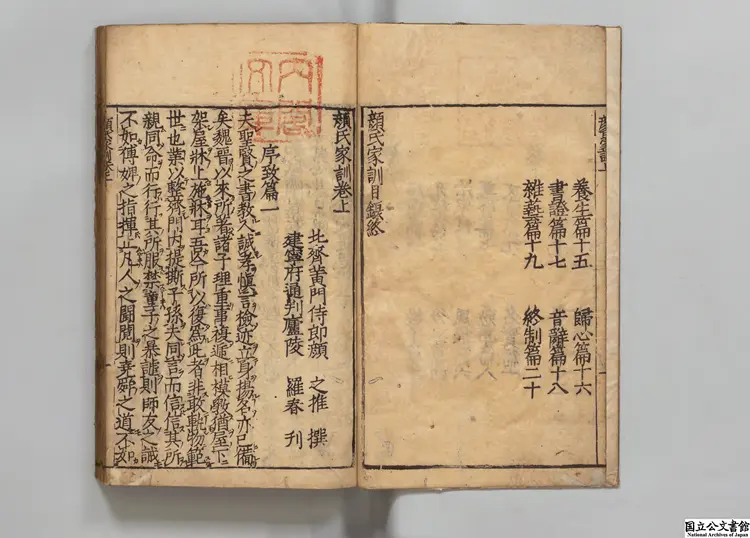 養生篇十五 歸心篇十六
書證篇十七 音辭篇十八
雜藝篇十九 終制篇二十
顔氏家訓目錄終
顔氏家訓卷上
北齊黃門侍郎顔 之推 撰
建寧府通判廬陵 羅春 刊
序致篇一
夫聖賢之書教人誠孝慎言檢迹立身揚名亦已備
矣魏晉以來所著諸子理重事複遞相模斆猶屋下
架屋牀上施牀耳吾今所以復爲此者非敢軌物範
世也業以整齊門内提撕子孫夫同言而信信其所
親同命而行行其所服禁童子之暴謔則師友之誡
不如傅婢之指揮止凡人之鬭鬩則堯舜之道不如
内閣文庫
国立公文書館
National Archives of Japan